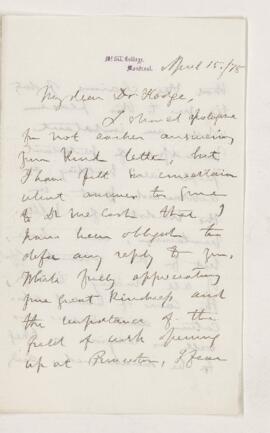 McGill College,
Montreal.
April 15/78
My dear Dr Hodge,
I should apologise
for not earlier answering
your kind letter, but
I have felt so uncertain
what answer to give
to Dr McCosh that I
have been obliged to
defer any reply to you.
While fully appreciating
your great kindness and
the importance of the
field of work opening
up at Princeton, I fear